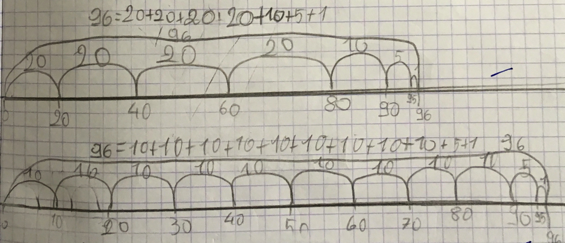 96=20+20+20+20+10+5+1
96
20 20 20 20 10 5 1
0 20 40 60 80 90 95 96
96=10+10+10+10+10+10+10+10+10+5+1
96
10 10 10 10 10 10 10 10 10 5 1
0 10 20 30 40 50 60 70 80 90 95 96